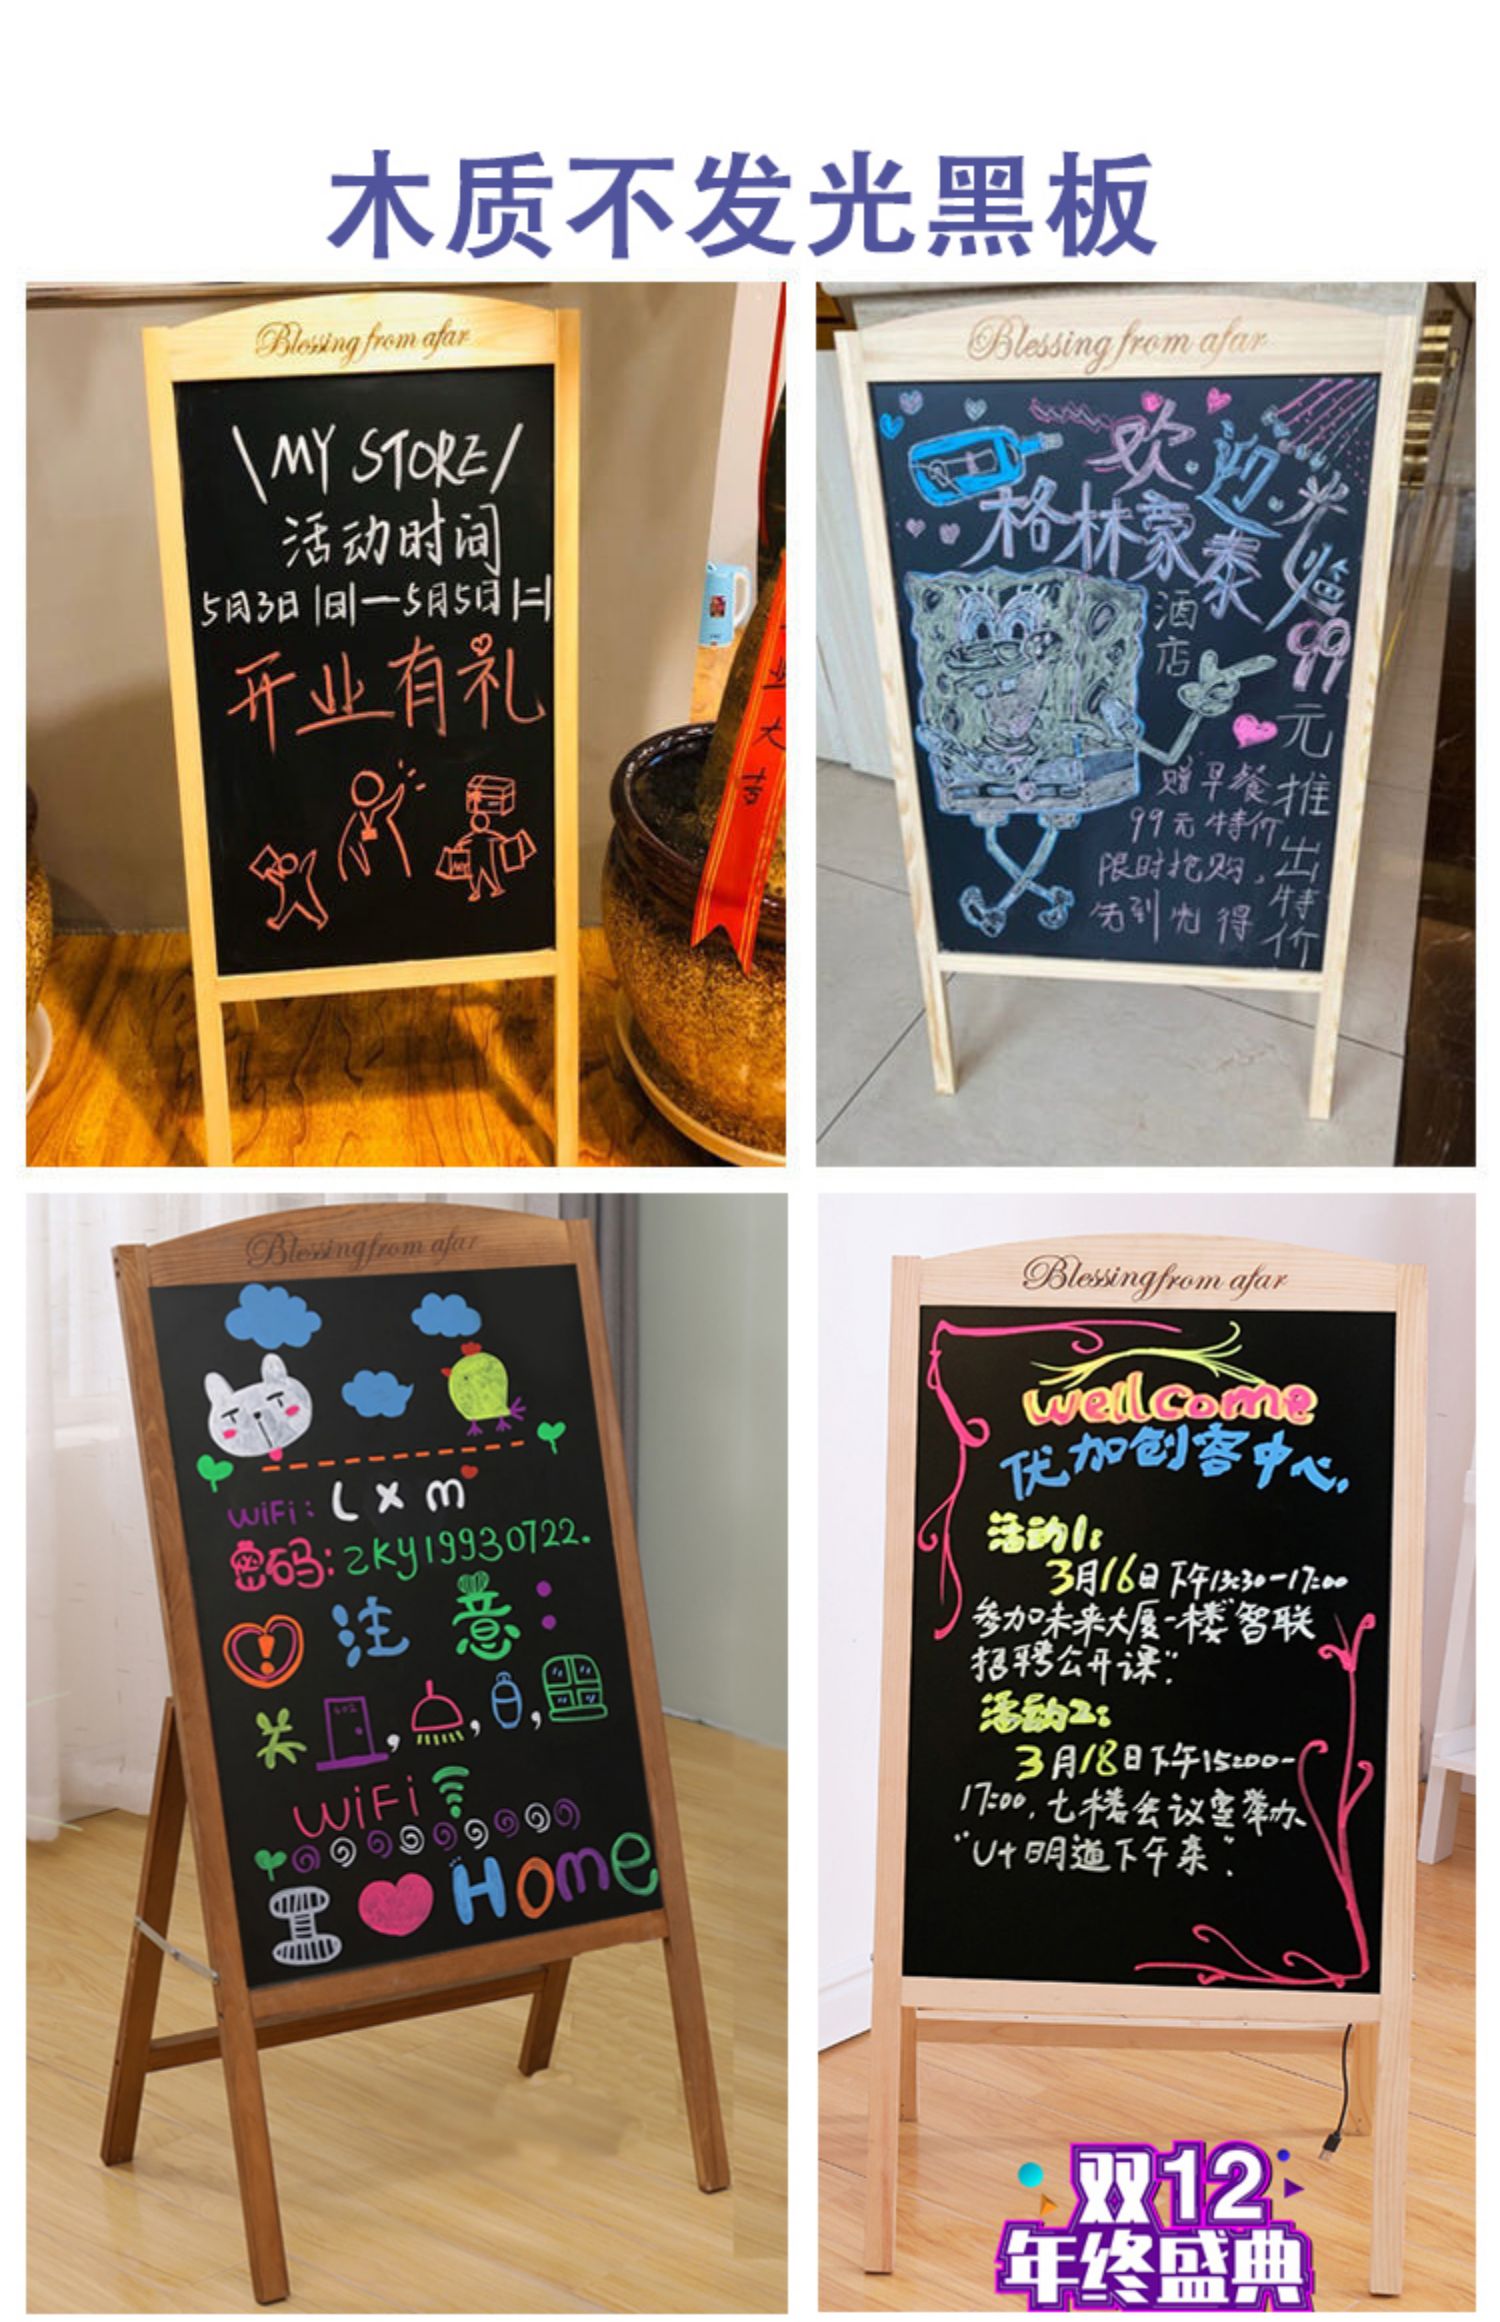 木质不发光黑板
Blessing from afar
\MY STORE/
活动时间
5月3日|日|—5月5日|二|
开业有礼
大吉
Blessing from afar
欢迎光临
格林豪泰
酒店
99元推出特价
赠早餐
99元特价
限时抢购,
先到先得
Blessing from afar
WiFi: Lxm
密码: zky19930722.
注意:
关 , , ,
WiFi
I Home
Blessing from afar
wellcome
优加创客中心.
活动1:
3月16日下午13:30-17:00
参加未来大厦一楼"智联
招聘公开课".
活动2:
3月18日下午15:00-
17:00, 七楼会议室举办
"U+明道下午来".
双12
年终盛典